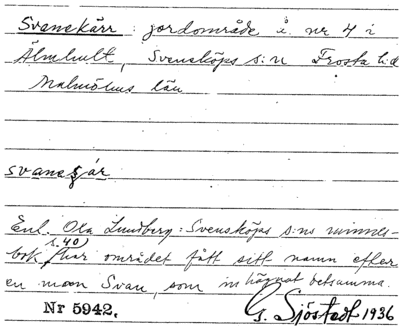 Svanekärr : jordområde å nr 4 i
Älmhult, Svensköps s:n Frosta h:d
Malmöhus län
svanesjär
Enl. Ola Lundberg: Svensköps s:ns minnes-
bok (s. 40) har området fått sitt namn efter
en man Svan, som inhägnat detsamma.
Nr 5942. G. Sjöstedt 1936